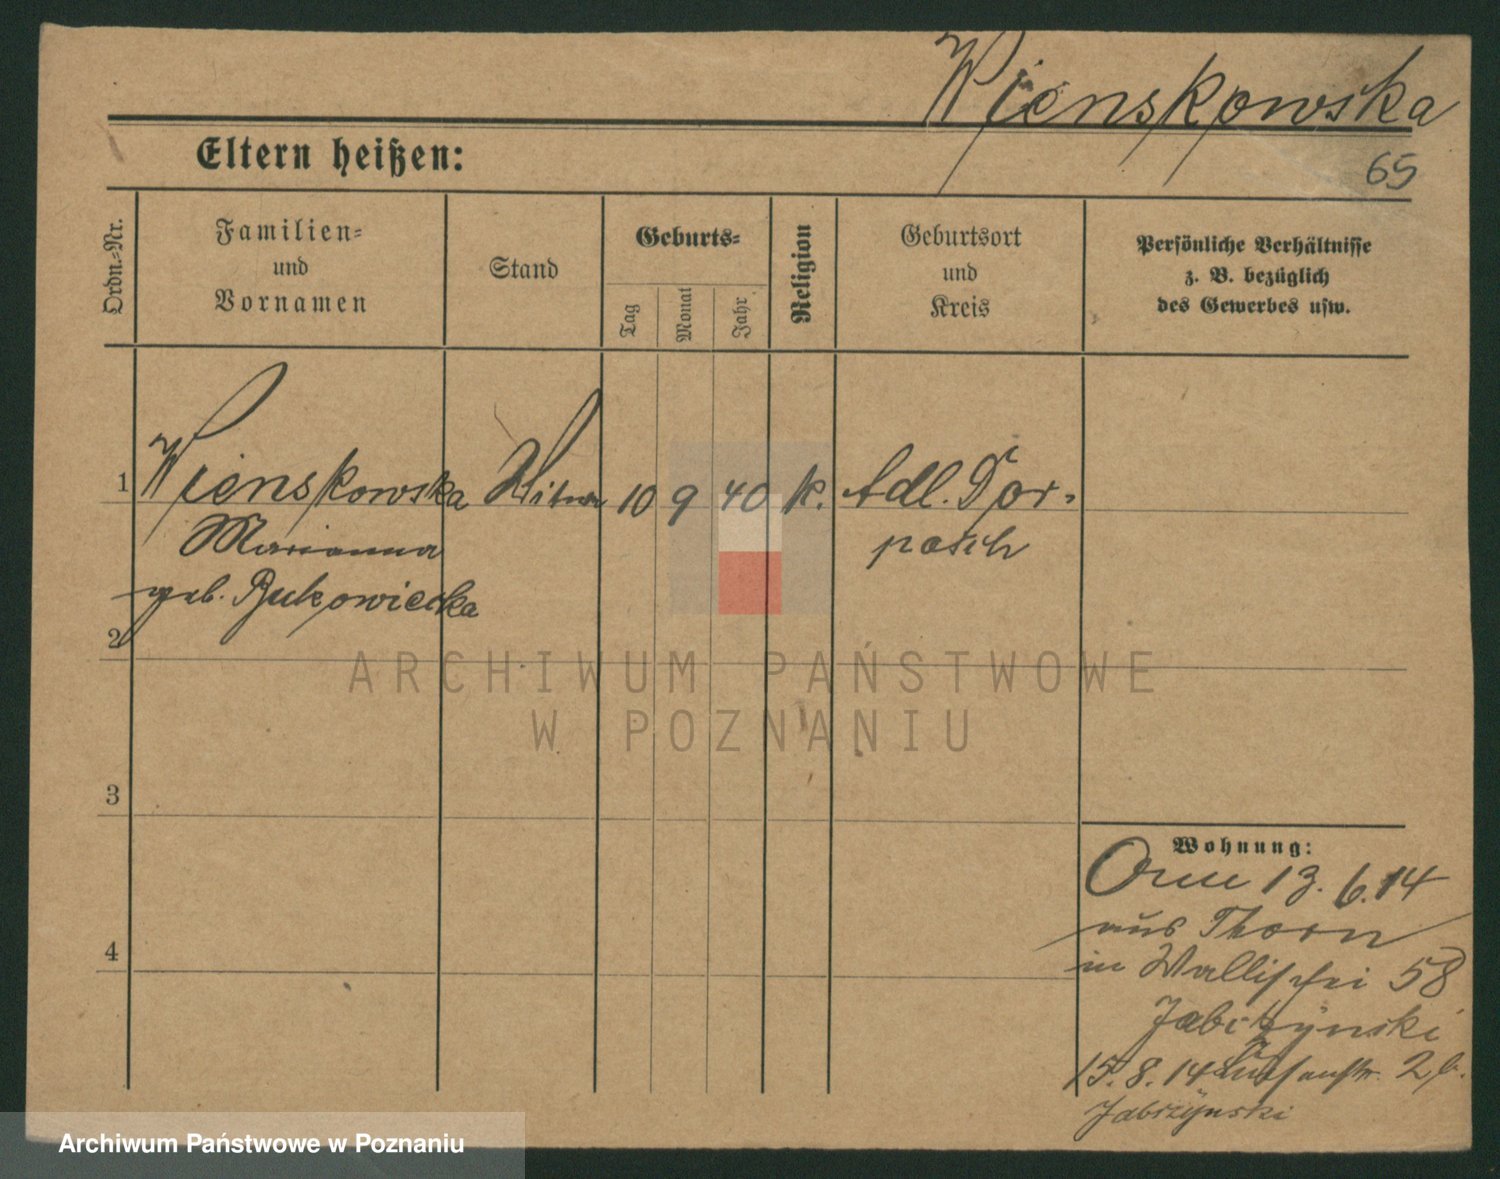 Wienskowska
65
Eltern heißen:
Ordn.-Nr.
Familien-
und
Vornamen
Stand
Geburts-
Tag
Monat
Jahr
Religion
Geburtsort
und
Kreis
Persönliche Verhältnisse
z. B. bezüglich
des Gewerbes usw.
1 Wienskowska Witwe 10 9 40 k. Adl. Dor-
Marianna posch
geb. Bukowiecka
2
ARCHIWUM PAŃSTWOWE
W POZNANIU
3
Wohnung:
13.6.14
aus Thorn
4
in Wallischei 58
Jabczynski
15.8.14 2b.
Jabczynski
Archiwum Państwowe w Poznaniu